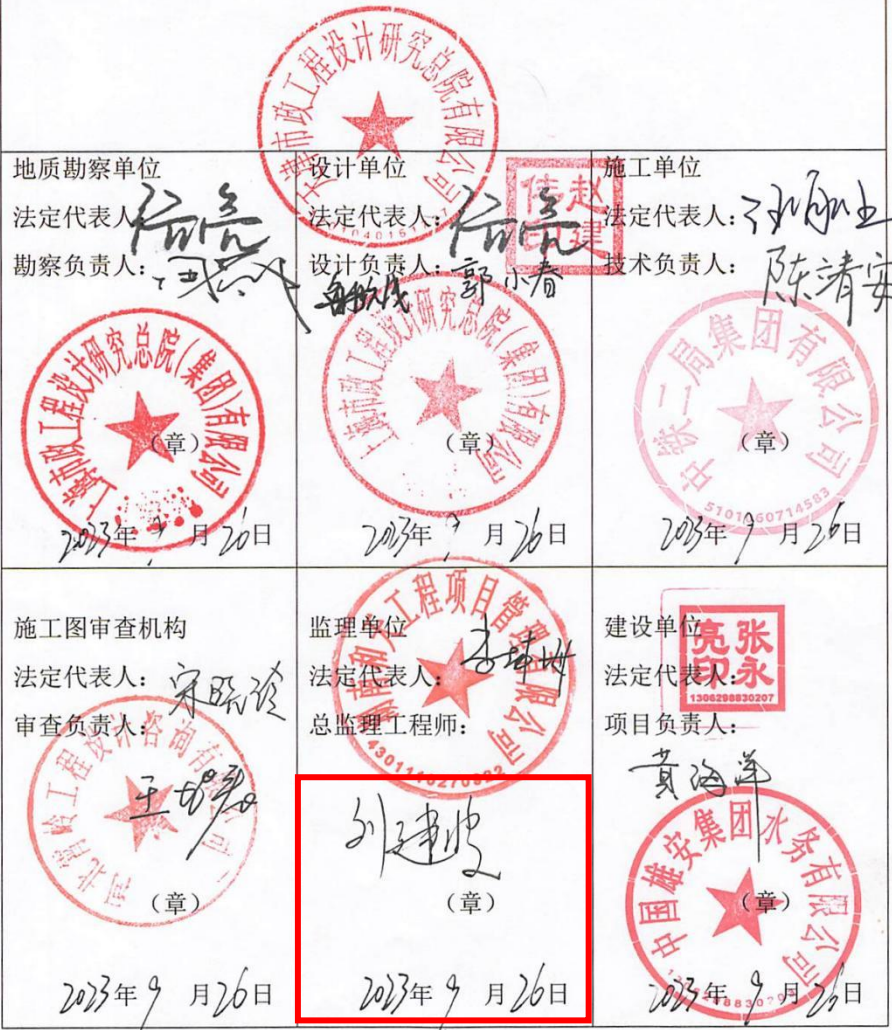 天津市政工程设计研究总院有限公司
地质勘察单位
法定代表人：
勘察负责人：
上海市政工程设计研究总院（集团）有限公司
（章）
2023年9月26日
设计单位
赵建伟印
法定代表人：
设计负责人：郭小春
上海市政工程设计研究总院（集团）有限公司
（章）
2023年9月26日
施工单位
法定代表人：
技术负责人：陈清安
中铁二局集团有限公司
（章）
2023年9月26日
施工图审查机构
法定代表人：宋晓玲
审查负责人：
（章）
2023年9月26日
监理单位
法定代表人：
总监理工程师：
刘建波
（章）
2023年9月26日
建设单位
张永亮印
1306298830207
法定代表人：
项目负责人：
黄海洋
中国雄安集团水务有限公司
（章）
2023年9月26日